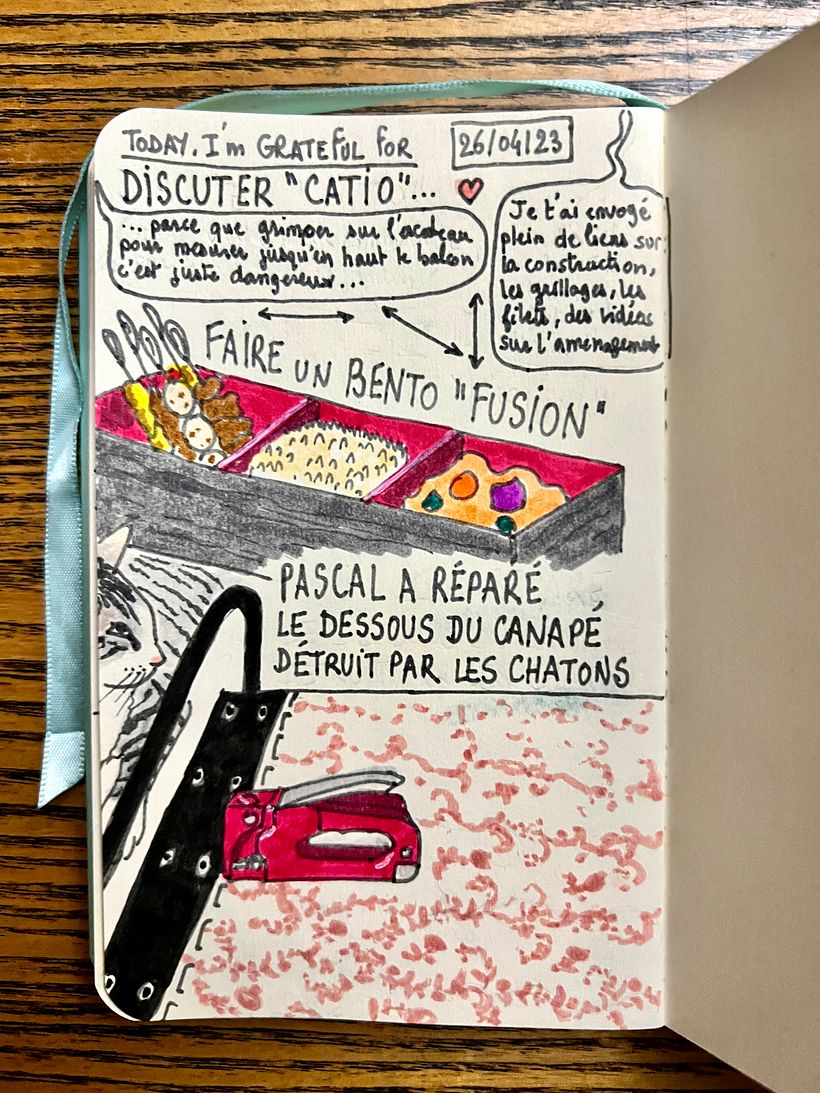 TODAY, I'm GRATEFUL FOR
26/04/23
DISCUTER "CATIO"...
... parce que grimper sur l'escabeau
pour mesurer jusqu'en haut le balcon
c'est juste dangereux...
Je t'ai envoyé
plein de liens sur
la construction,
les grillages, les
filets, des vidéos
sur l'aménagement
FAIRE UN BENTO "FUSION"
PASCAL A RÉPARÉ
LE DESSOUS DU CANAPÉ
DÉTRUIT PAR LES CHATONS